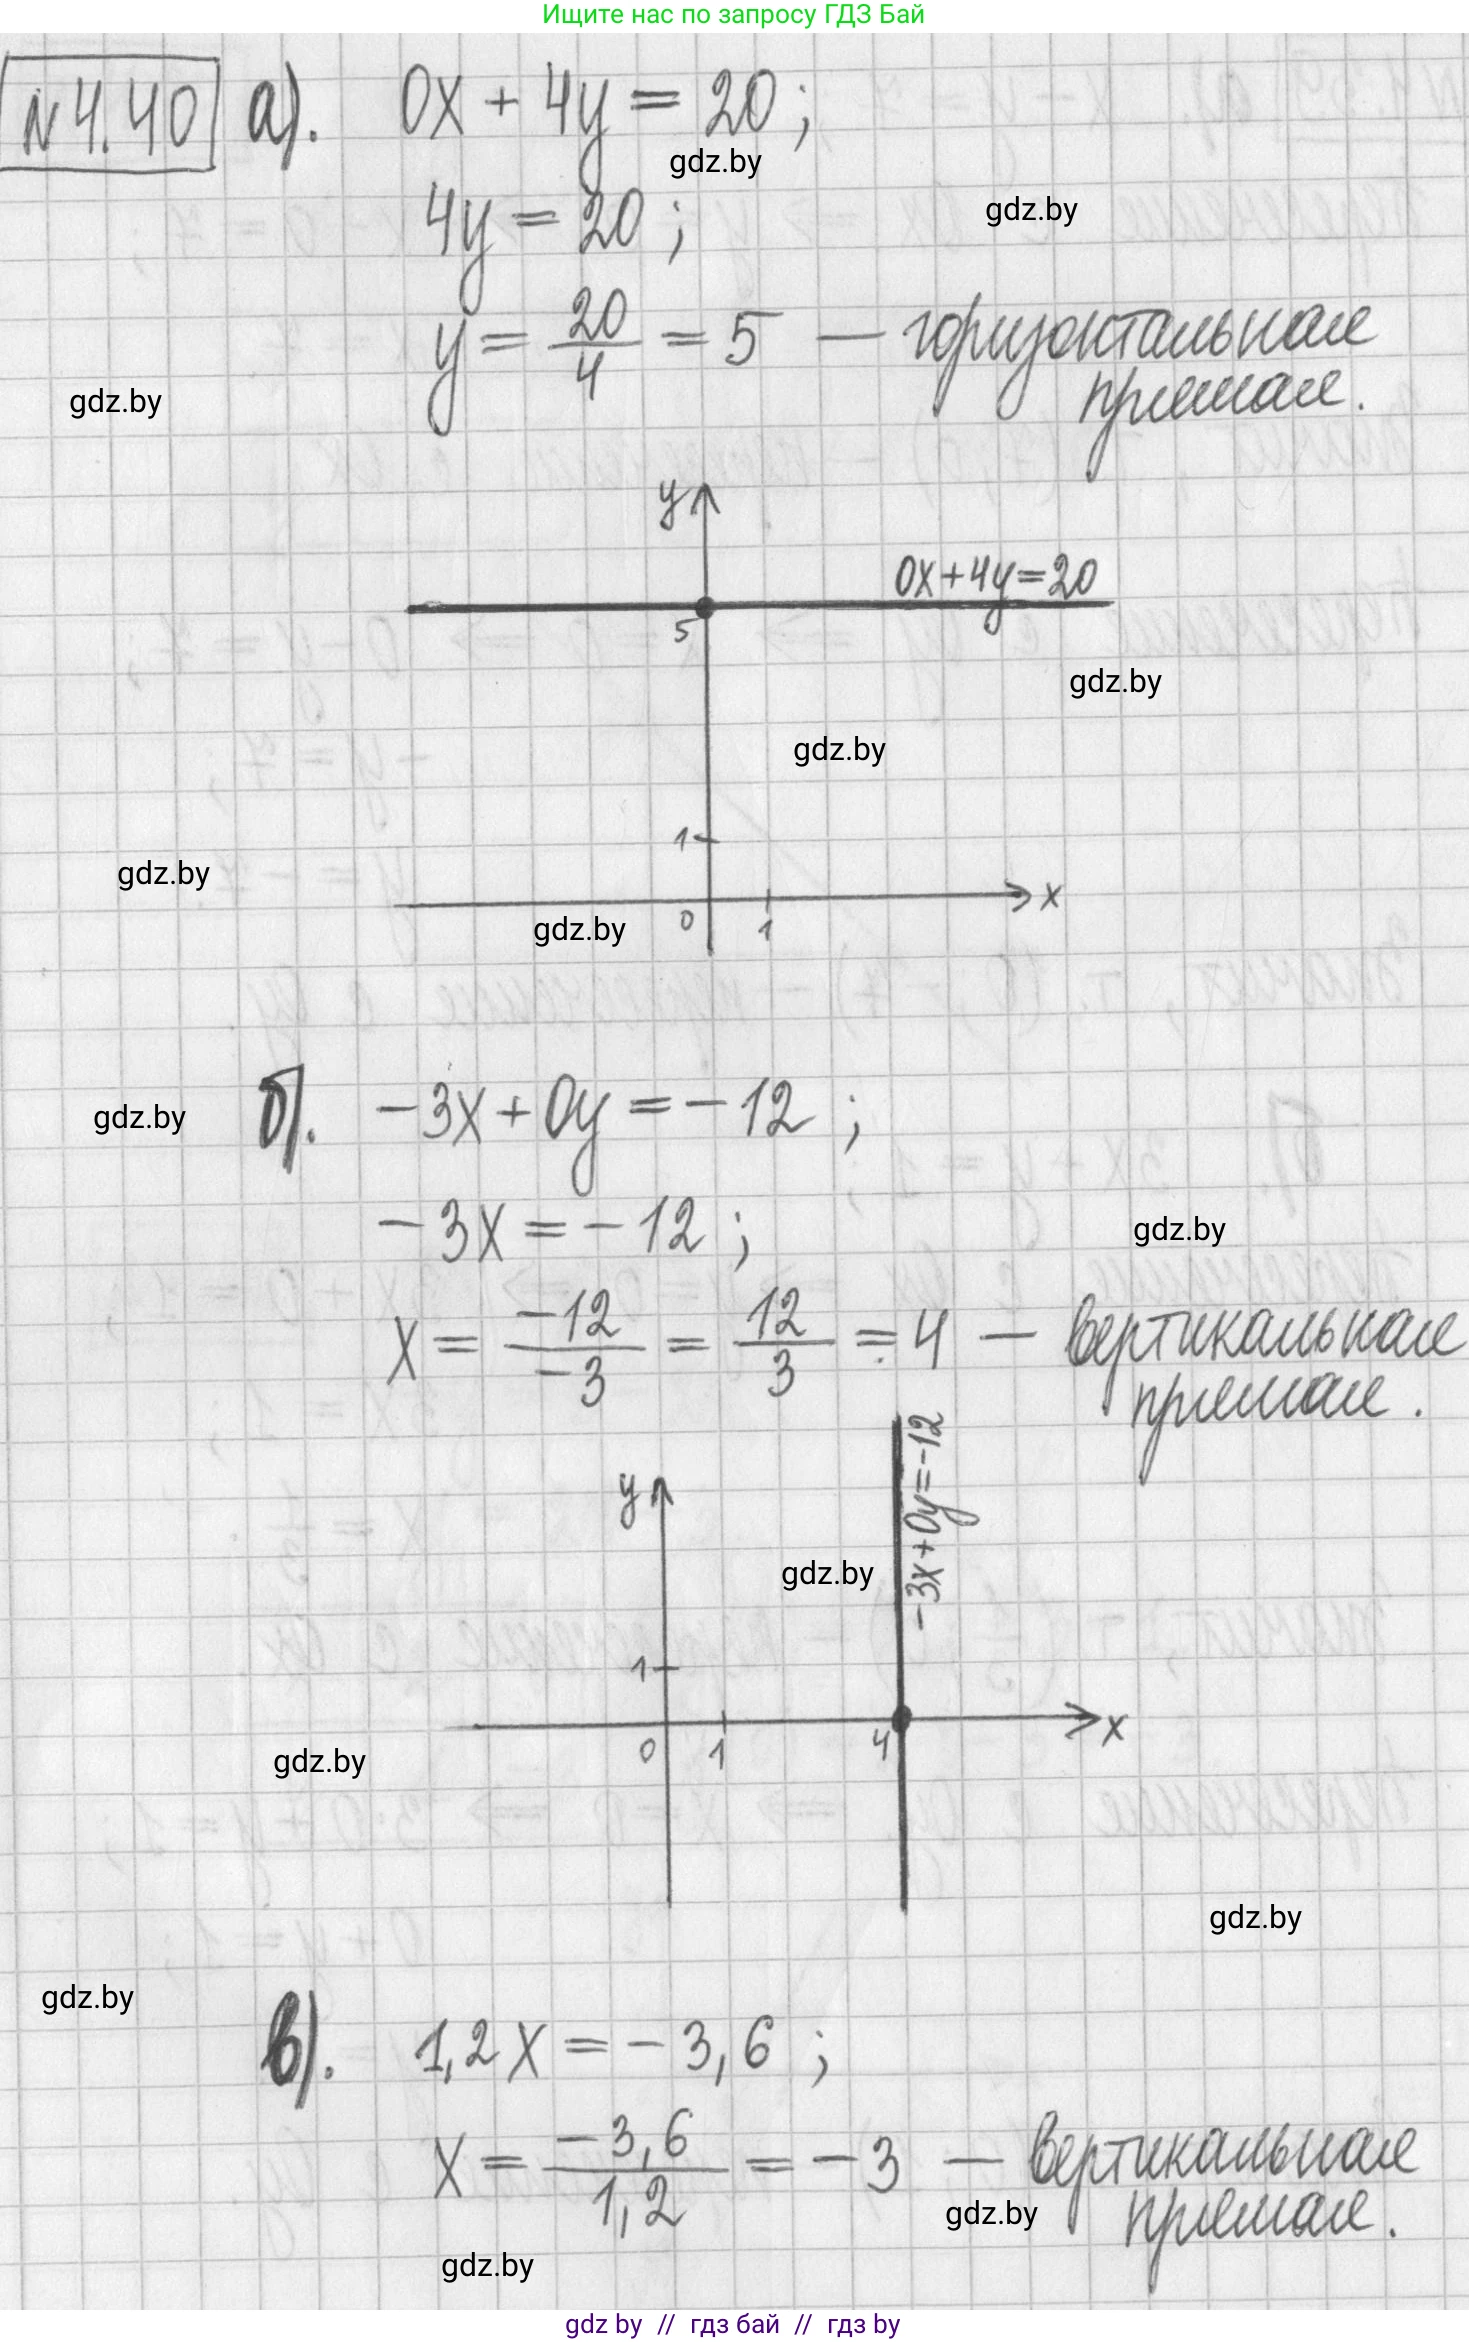 Ищите нас по запросу ГДЗ Бай
N4.40 а). 0x + 4y = 20;
gdz.by
4y = 20;
gdz.by
y = 20/4 = 5 — горизонтальная
прямая.
gdz.by
y
0x+4y=20
5
gdz.by
gdz.by
1
gdz.by
x
0 1
gdz.by
б). -3x+0y=-12;
gdz.by
-3x=-12;
gdz.by
x = -12/-3 = 12/3 = 4 — вертикальная
прямая.
y
-3x+0y=-12
gdz.by
1
0 1 4 x
gdz.by
gdz.by
gdz.by
в). 1,2x = -3,6;
x = -3,6/1,2 = -3 — вертикальная
прямая.
gdz.by
gdz.by
gdz by // гдз бай // гдз by